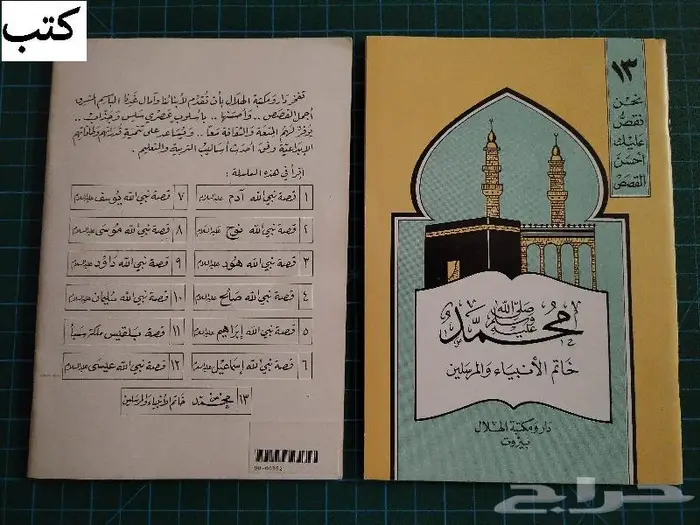 كتب
تفخر دار ومكتبة الهلال بأن تقدم لأبنائنا وآمال غدنا الباسم المشرق
أجمل القصص .. وأحسنها .. بأسلوب عصري سلس وجذاب ..
يوفر لهم المتعة والثقافة معاً .. ويساعد على تنمية قدراتهم وطاقاتهم
الإبداعية وفق أحدث أساليب التربية والتعليم .
اقرأ في هذه السلسلة :
١ قصة نبي الله آدم عليه السلام
٢ قصة نبي الله نوح عليه السلام
٣ قصة نبي الله هود عليه السلام
٤ قصة نبي الله صالح عليه السلام
٥ قصة نبي الله إبراهيم عليه السلام
٦ قصة نبي الله إسماعيل عليه السلام
٧ قصة نبي الله يوسف عليه السلام
٨ قصة نبي الله موسى عليه السلام
٩ قصة نبي الله داود عليه السلام
١٠ قصة نبي الله سليمان عليه السلام
١١ قصة بلقيس ملكة سبأ
١٢ قصة نبي الله عيسى عليه السلام
١٣ محمد ﷺ خاتم الأنبياء والمرسلين
١٣
نحن
نقص
عليك
أحسن
القصص
محمد صلى الله عليه وسلم
خاتم الأنبياء والمرسلين
دار ومكتبة الهلال
بيروت
حراج